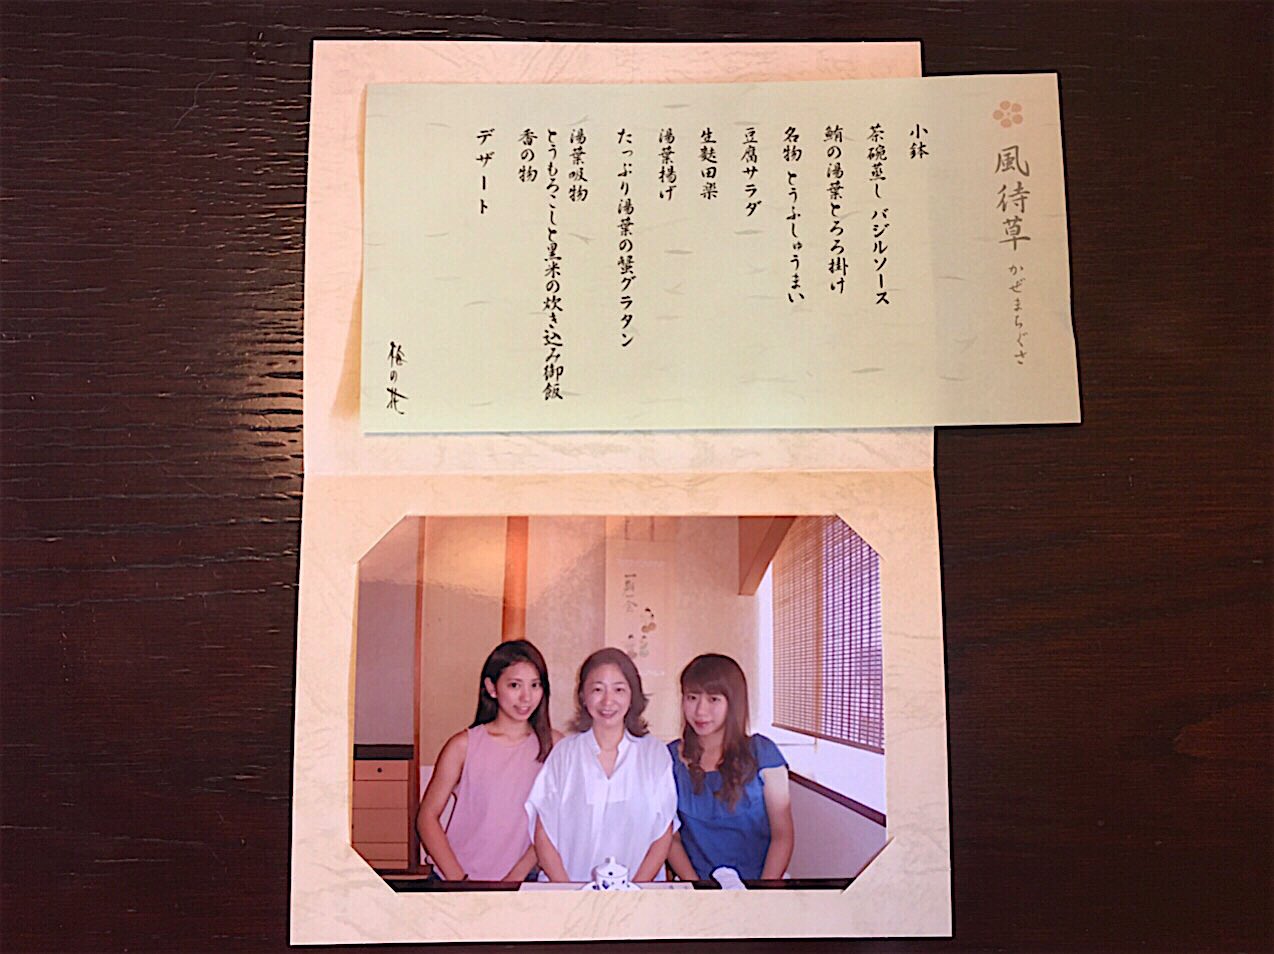 風待草 かぜまちぐさ
小鉢
茶碗蒸し バジルソース
鮪の湯葉とろろ掛け
名物 とうふしゅうまい
豆腐サラダ
生麩田楽
湯葉揚げ
たっぷり湯葉の蟹グラタン
湯葉吸物
とうもろこしと黒米の炊き込み御飯
香の物
デザート
梅の花
一期一会